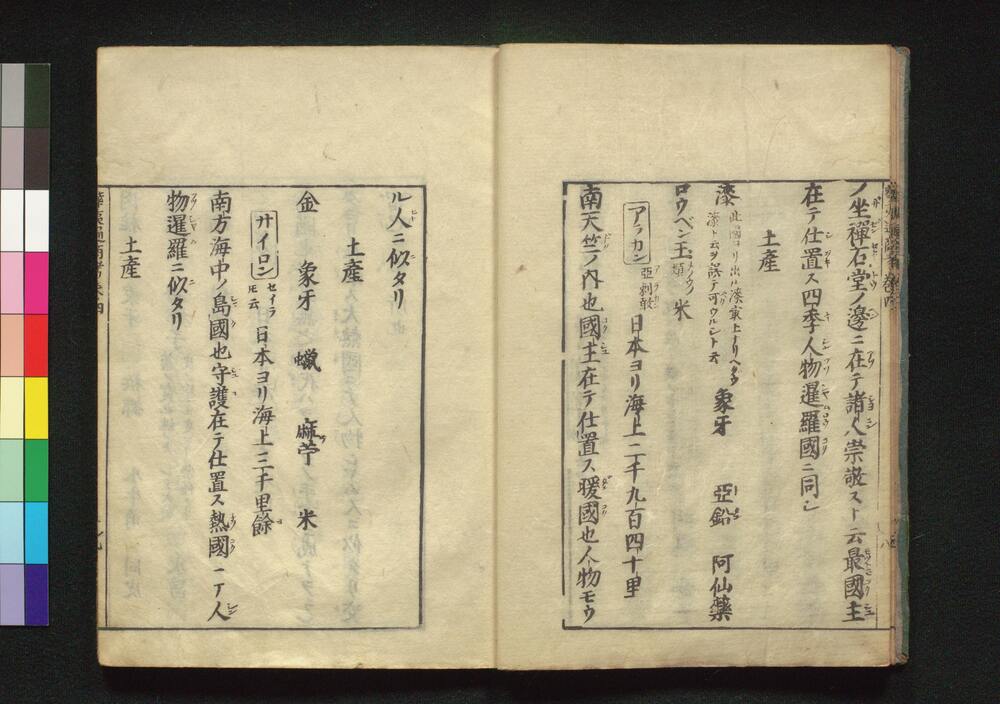 ノ坐禪石堂ノ邊ニ在テ諸人崇敬スト云最國主
在テ仕置ス四季人物暹羅國ニ同シ
土産
漆 此國ヨリ出ル漆最上ナリ 漆ト云ヲ誤テ 象牙 亞鉛 阿仙藥
ロウベン玉 米
アラカン 亞剌敢 日本ヨリ海上二千九百四十里
南天竺ノ内也國主在テ仕置ス暖國也人物モウ
ル人ニ似タリ
土産
金 象牙 蠟 麻苧 米
サイロン セイラ 圧云 日本ヨリ海上三千里餘
南方海中ノ島國也守護在テ仕置ス熱國ニテ人
物暹羅ニ似タリ
土産